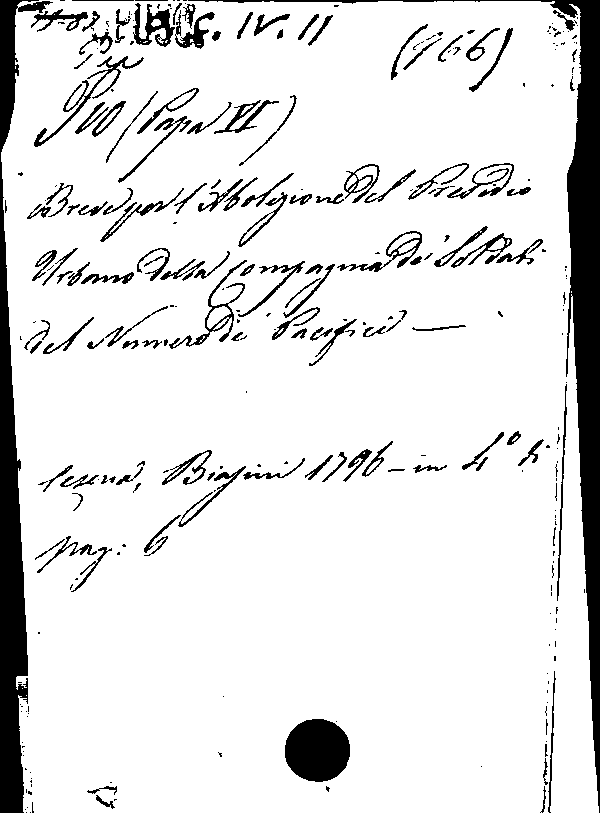 C. IV. 11
(966)
Piu
Pio (Papa VI)
Breve per l'Abolizione del Presidio
Urbano della Compagnia de' Soldati
del Numero de' Pacifici —
Cesena, Biasini 1796 – in 4º di
pag: 6